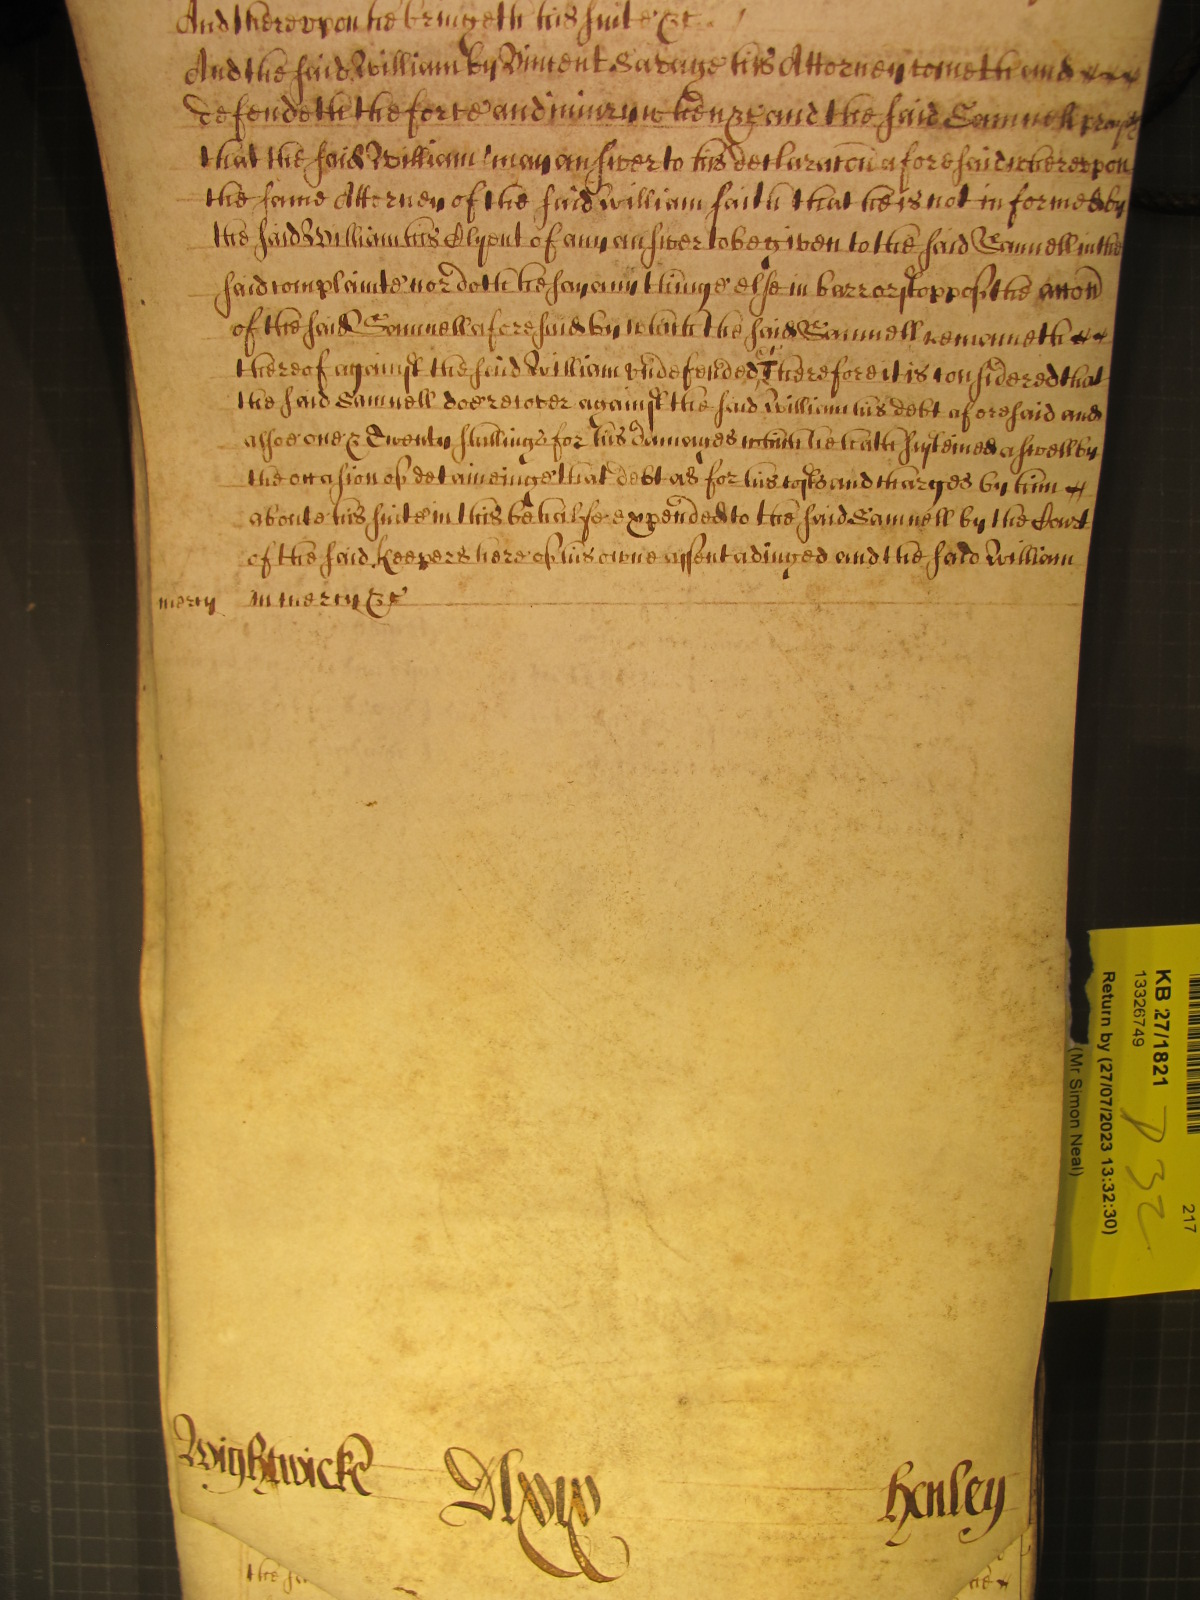 And therevpon he bringeth his suite &c
And the said William by Vincent Savage his Attorney cometh and
defendeth the force and iniury when &c and the said Samuell prayeth
that the said William may answer to his declaracon aforesaid wherevpon
the same Attorney of the said William saith that he is not informed by
the said William his Clyent of any answer to be given to the said Samuell in the
said complainte nor doth he say any thinge else in barr or stopp of the accon
of the said Samuell aforesaid by which the said Samuell remaineth
thereof against the said William vndefended Therefore it is considered that
the said Samuell doe recover against the said William his debt aforesaid and
alsoe one & Twenty shillings for his damages which he hath susteined aswell by
the occasion of detaineinge that debt as for his costs and charges by him
aboute his suite in this behalfe expended to the said Samuell by the Court
of the said Keepers here of his owne assent adiudged and the said William
mercy in mercy &c
Wightwicke Dlxiij Henley
the sa
KB 27/1821
13326749
Return by (27/07/2023 13:32:30)
(Mr Simon Neal)
217